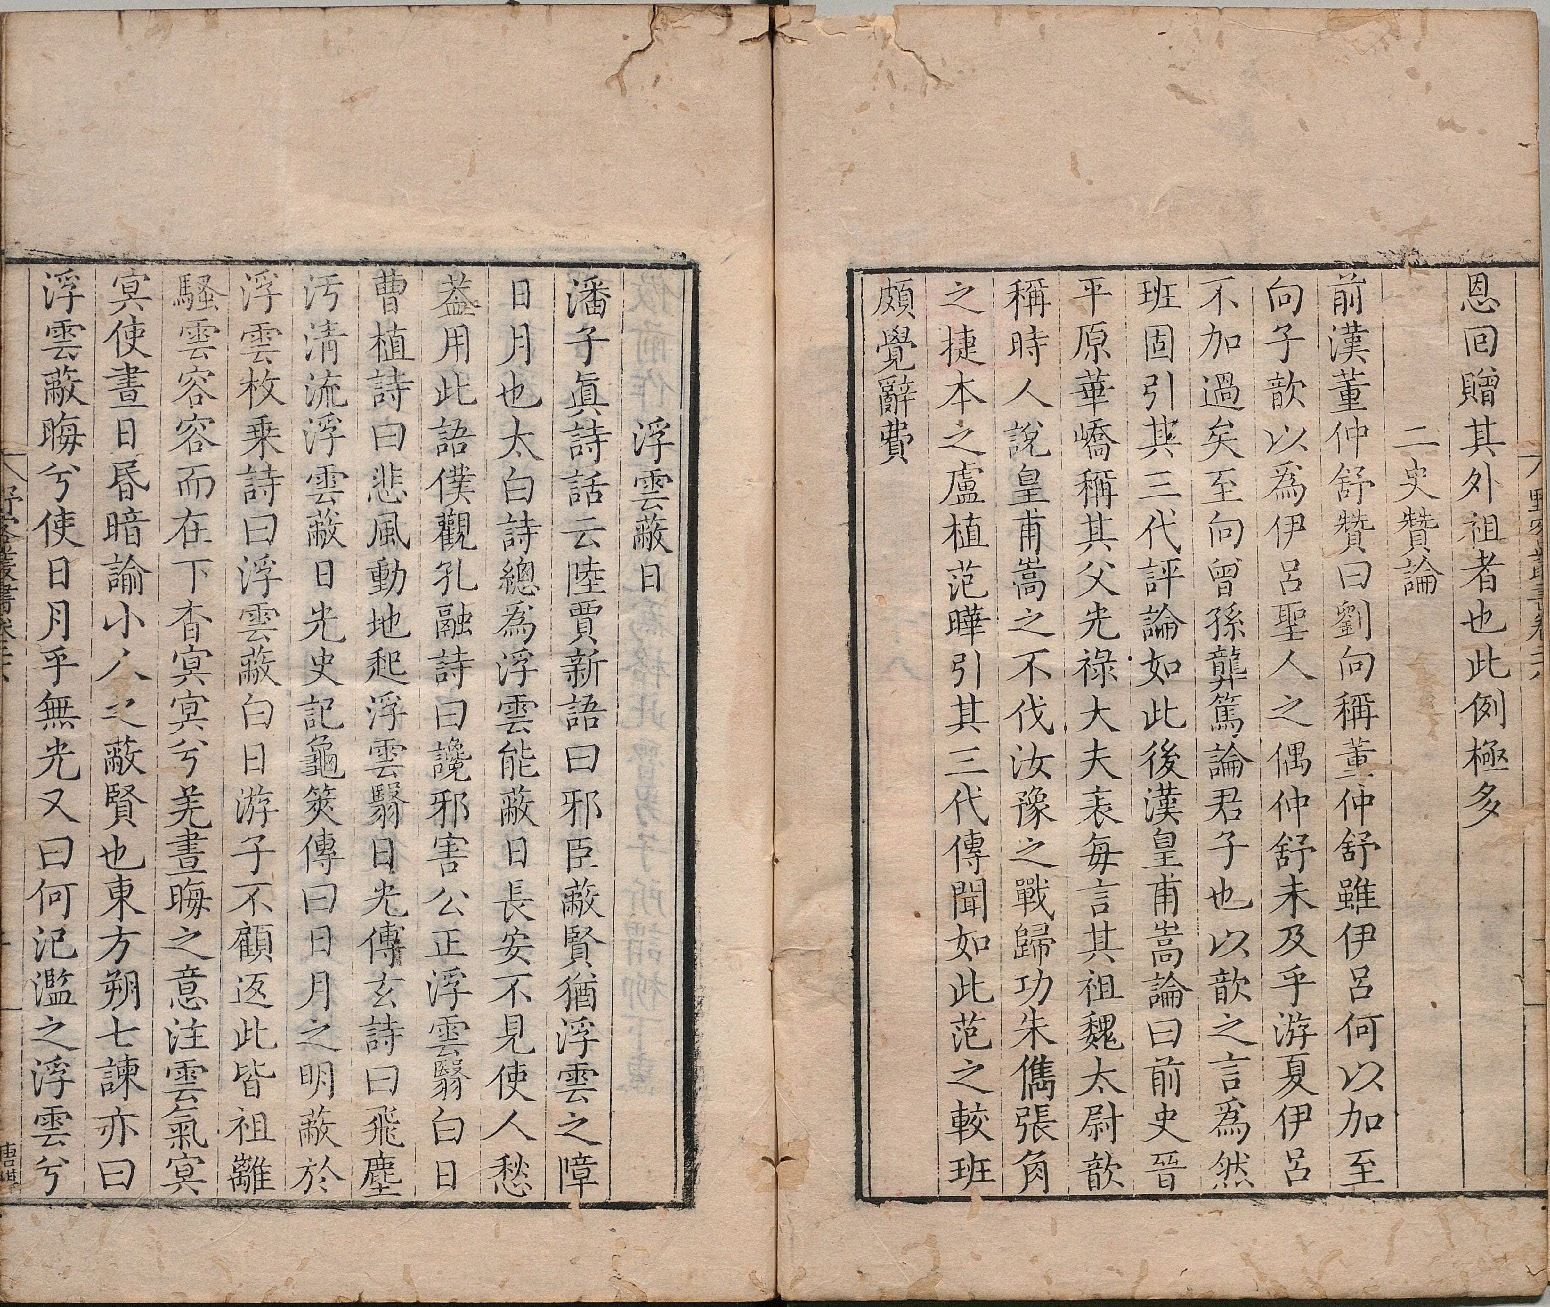 恩回贈其外祖者也此例極多
二史贊論
前漢董仲舒贊曰劉向稱董仲舒雖伊呂何以加至
向子歆以爲伊呂聖人之偶仲舒未及乎游夏伊呂
不加過矣至向曾孫龔篤論君子也以歆之言爲然
班固引其三代評論如此後漢皇甫嵩論曰前史晉
平原華嶠稱其父光祿大夫表每言其祖魏太尉歆
稱時人說皇甫嵩之不伐汝豫之戰歸功朱儁張角
之捷本之盧植范曄引其三代傳聞如此范之較班
頗覺辭費
浮雲蔽日
潘子眞詩話云陸賈新語曰邪臣蔽賢猶浮雲之障
日月也太白詩總爲浮雲能蔽日長安不見使人愁
葢用此語僕觀孔融詩曰讒邪害公正浮雲翳白日
曹植詩曰悲風動地起浮雲翳日光傳玄詩曰飛塵
汚清流浮雲蔽日光史記龜筴傳曰日月之明蔽於
浮雲枚乗詩曰浮雲蔽白日游子不顧返此皆祖離
騷雲容容而在下杳㝠㝠兮羌晝晦之意注雲氣㝠
㝠使晝日昬暗論小人之蔽賢也東方朔七諫亦曰
浮雲蔽晦兮使日月乎無光又曰何氾濫之浮雲兮
野客叢書卷